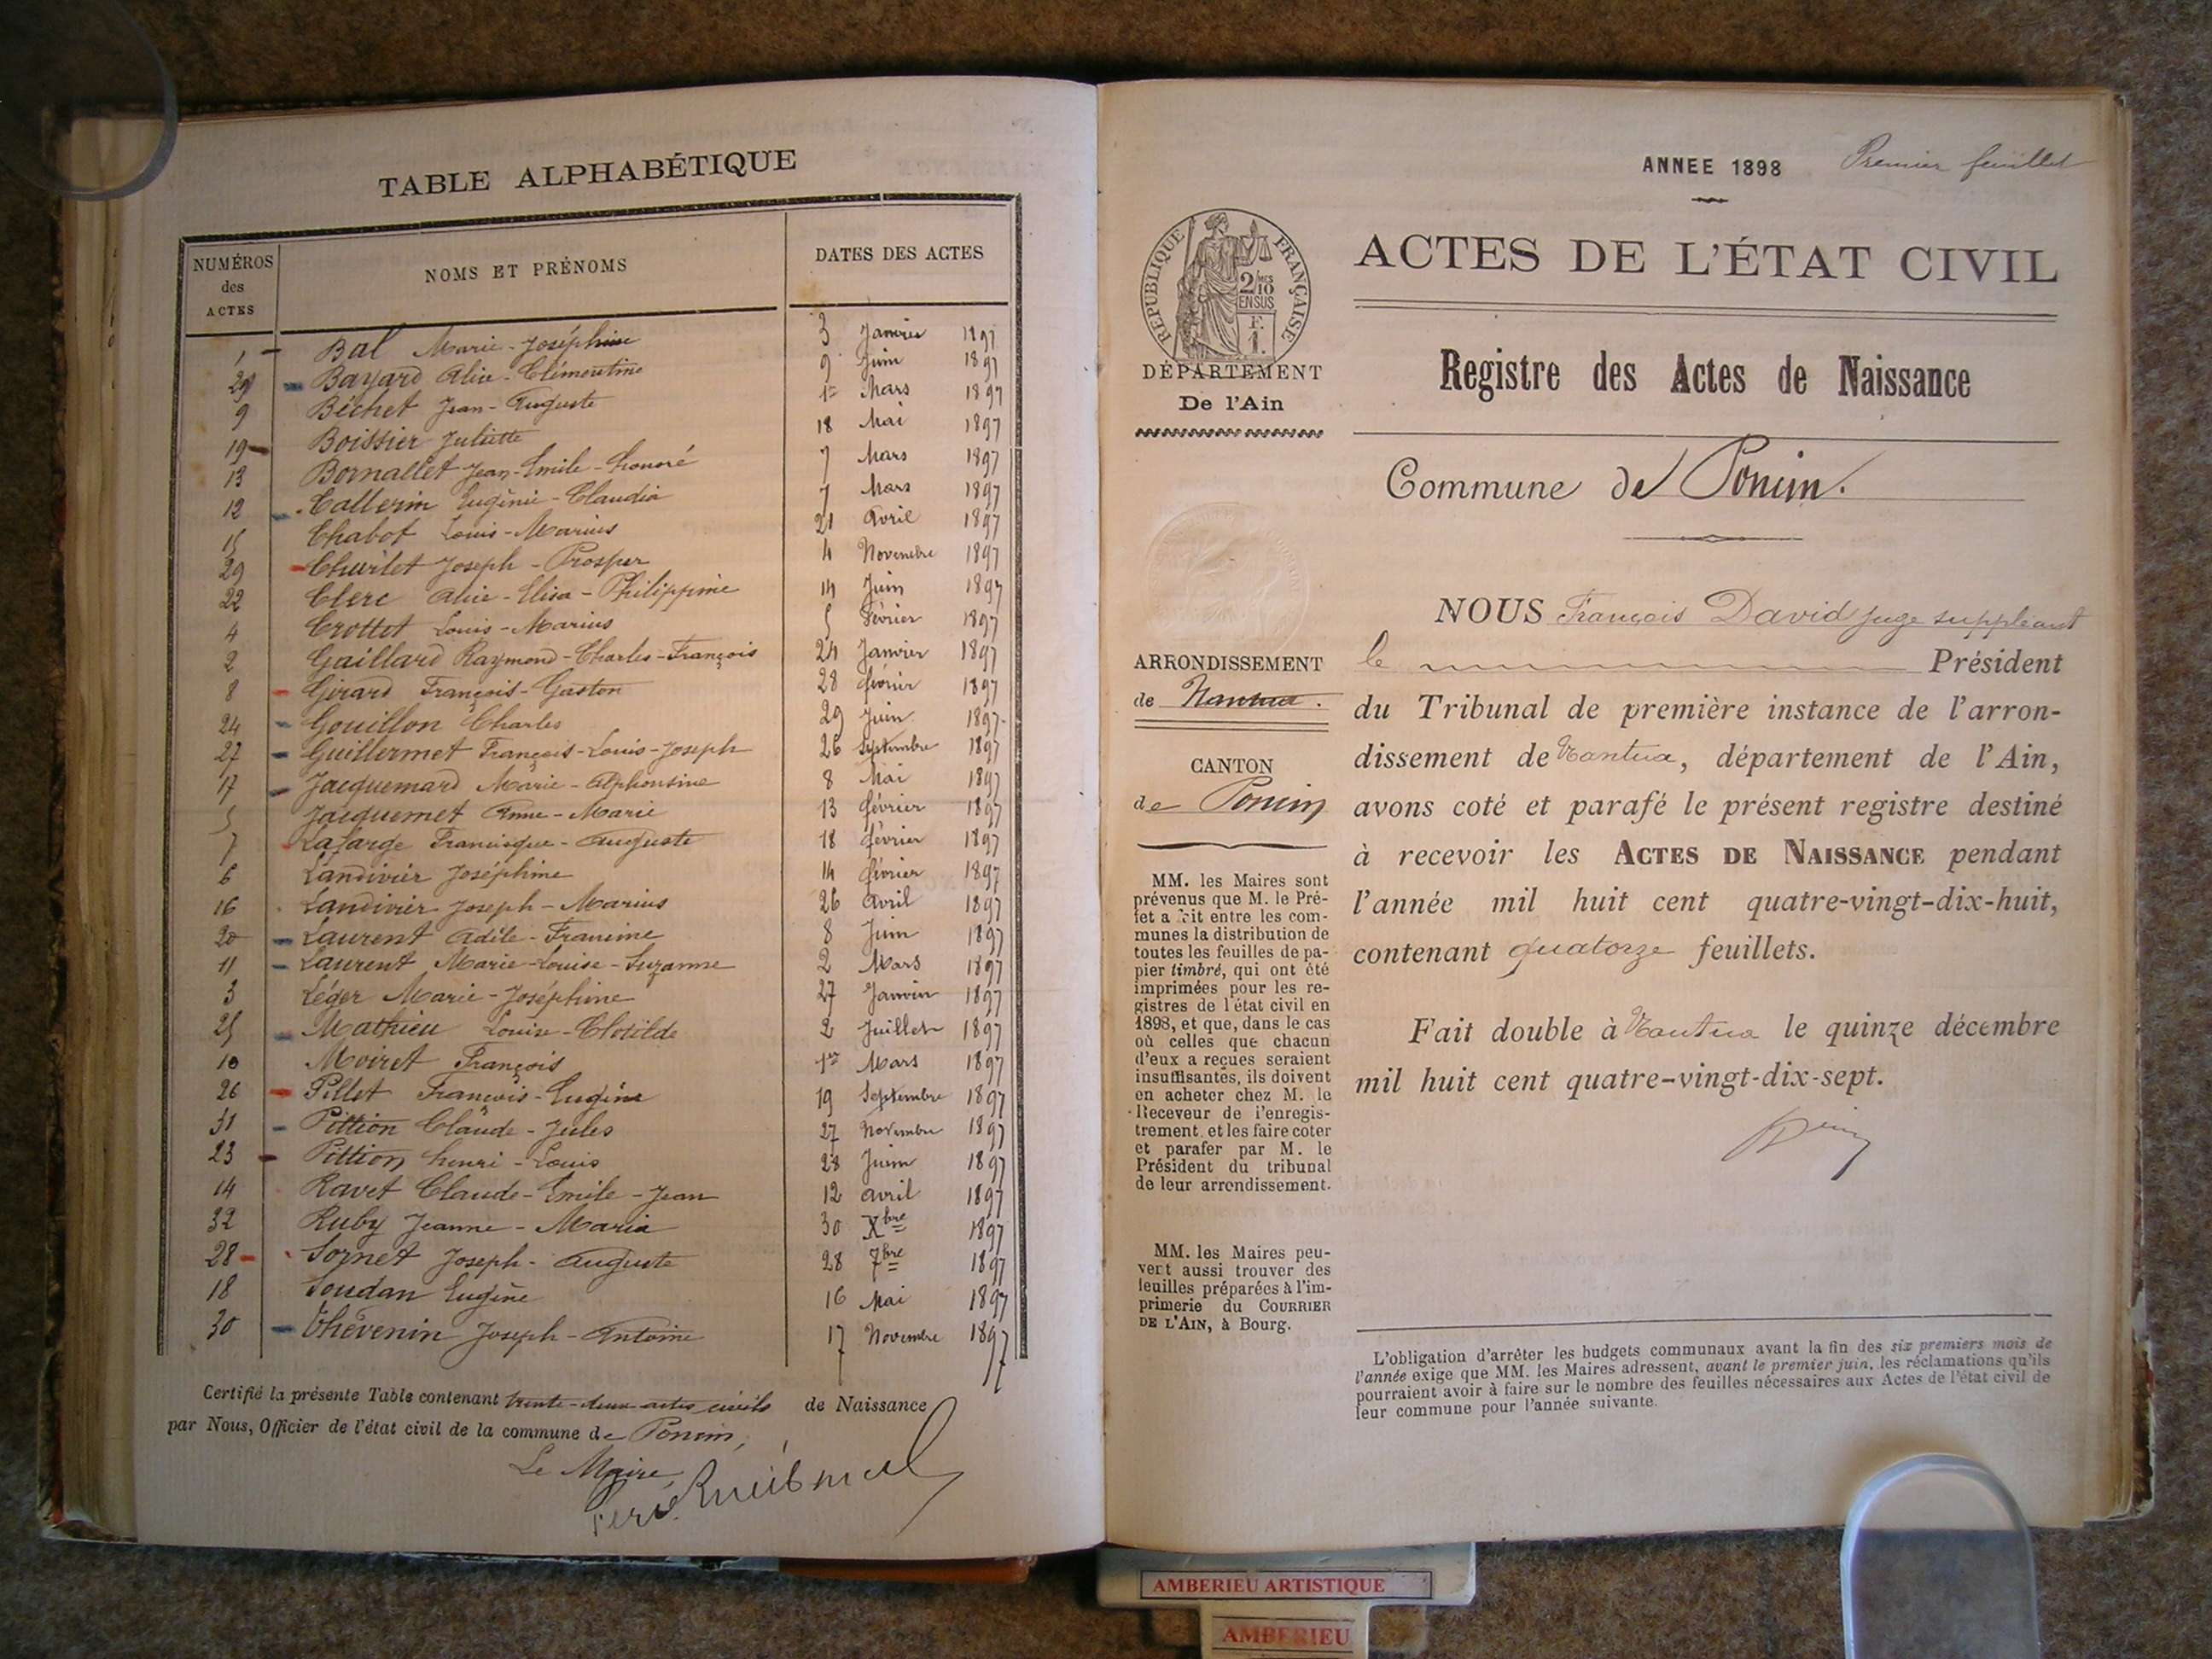 TABLE ALPHABÉTIQUE
NUMÉROS des ACTES NOMS ET PRÉNOMS DATES DES ACTES
1 Bal Marie-Joséphine 3 Janvier 1897
Bayard Alice-Clémentine 9 Juin 1897
9 Béchet Jean-Auguste 1er Mars 1897
19 Boissier Juliette 18 Mai 1897
13 Bornallet Jean-Emile-honoré 7 Mars 1897
12 Callerin Eugénie-Claudia 7 Mars 1897
15 Chabot Louis-Marius 21 Avril 1897
29 Joseph-Prosper 4 Novembre 1897
22 Clerc Alice-Elisa-Philippine 14 Juin 1897
4 Crottet Louis-Marius 5 Février 1897
2 Gaillard Raymond-Charles-François 24 Janvier 1897
8 Girard François-Gaston 28 février 1897
24 Gouillon Charles 29 Juin 1897
27 Guillermet François-Louis-Joseph 26 Septembre 1897
17 Jacquemard Marie-Alphonsine 8 Mai 1897
5 Jacquemet Anne-Marie 13 février 1897
7 Lafarge Francisque-Auguste 18 février 1897
6 Landivier Joséphine 14 février 1897
16 Landivier Joseph-Marius 26 Avril 1897
20 Laurent Adèle-Francine 8 Juin 1897
11 Laurent Marie-Louise-Suzanne 2 Mars 1897
3 Léger Marie-Joséphine 27 Janvier 1897
25 Mathieu Louise-Clotilde 2 Juillet 1897
10 Moiret François 1er Mars 1897
26 Pillet François-Eugène 19 Septembre 1897
31 Pittion Claude-Jules 27 Novembre 1897
23 Pittion henri-Louis 28 Juin 1897
14 Ravet Claude-Emile-Jean 12 avril 1897
32 Ruby Jeanne-Maria 30 Xbre 1897
28 Sornet Joseph-Auguste 28 7bre 1897
18 Soudan Eugène 16 Mai 1897
30 Thévenin Joseph-Antoine 17 Novembre 1897
Certifié la présente Table contenant trente-deux actes civils de Naissance
par Nous, Officier de l'état civil de la commune de Poncin,
Le Maire,
ANNEE 1898 Premier feuillet
RÉPUBLIQUE FRANÇAISE
2/10 MES
EN SUS
F.
1.
DÉPARTEMENT
De l'Ain
ACTES DE L'ÉTAT CIVIL
Registre des Actes de Naissance
Commune de Poncin.
ARRONDISSEMENT
de Nantua.
CANTON
de Poncin
MM. les Maires sont
prévenus que M. le Pré-
fet a fait entre les com-
munes la distribution de
toutes les feuilles de pa-
pier timbré, qui ont été
imprimées pour les re-
gistres de l'état civil en
1898, et que, dans le cas
où celles que chacun
d'eux a reçues seraient
insuffisantes, ils doivent
en acheter chez M. le
Receveur de l'enregis-
trement, et les faire coter
et parafer par M. le
Président du tribunal
de leur arrondissement.
MM. les Maires peu-
vent aussi trouver des
feuilles préparées à l'im-
primerie du COURRIER
DE L'AIN, à Bourg.
NOUS François David juge suppléant
le Président
du Tribunal de première instance de l'arron-
dissement de Nantua, département de l'Ain,
avons coté et parafé le présent registre destiné
à recevoir les ACTES DE NAISSANCE pendant
l'année mil huit cent quatre-vingt-dix-huit,
contenant quatorze feuillets.
Fait double à Nantua le quinze décembre
mil huit cent quatre-vingt-dix-sept.
L'obligation d'arrêter les budgets communaux avant la fin des six premiers mois de
l'année exige que MM. les Maires adressent, avant le premier juin, les réclamations qu'ils
pourraient avoir à faire sur le nombre des feuilles nécessaires aux Actes de l'état civil de
leur commune pour l'année suivante.
AMBERIEU ARTISTIQUE
AMBERIEU